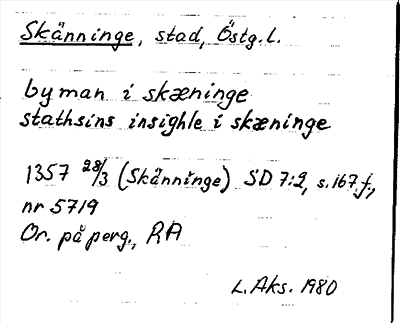 Skänninge, stad, Östg.l.
byman i skæninge
stathsins insighle i skæninge
1357 28/3 (Skänninge) SD 7:2, s. 167 f.,
nr 5719
Or. på perg., RA
L. Aks. 1980